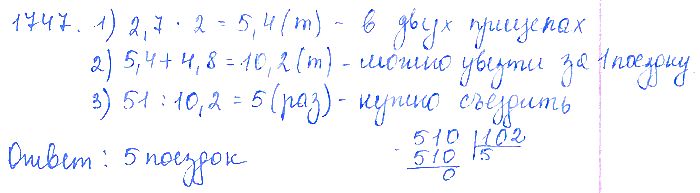 1747. 1) 2,7 · 2 = 5,4 (т) - в двух прицепах
2) 5,4 + 4,8 = 10,2 (т) - можно увезти за 1 поездку
3) 51 : 10,2 = 5 (раз) - нужно съездить
Ответ: 5 поездок
510 | 102
510 | 5
0